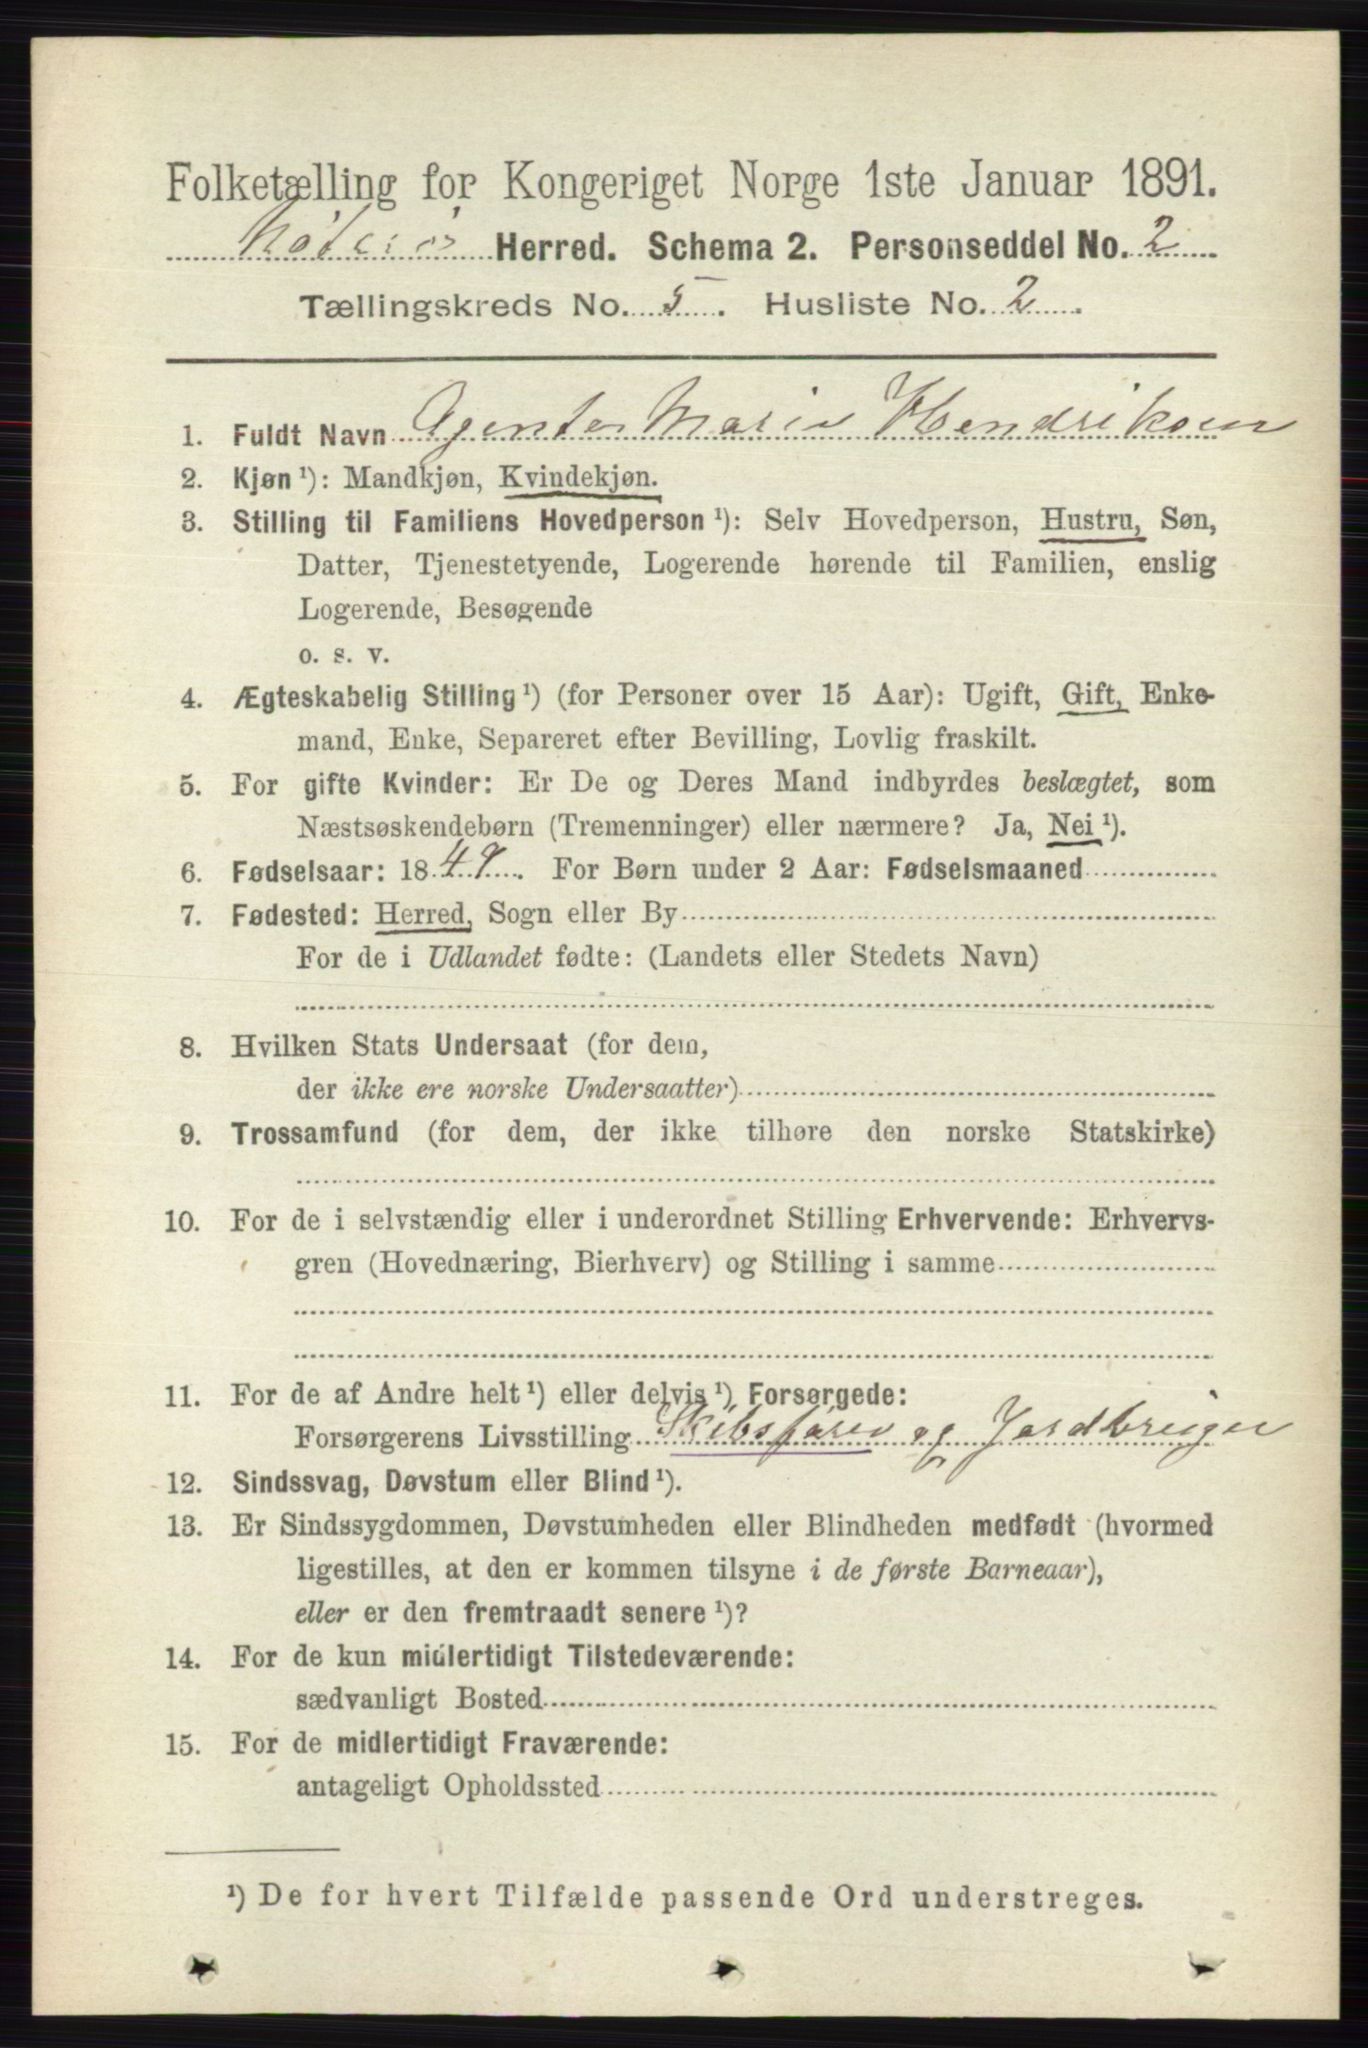 Folketælling for Kongeriget Norge 1ste Januar 1891.
Nøterø Herred. Schema 2. Personseddel No. 2
Tællingskreds No. 5. Husliste No. 2.
1. Fuldt Navn Agente Marie Hendriksen
2. Kjøn ¹): Mandkjøn, Kvindekjøn.
3. Stilling til Familiens Hovedperson ¹): Selv Hovedperson, Hustru, Søn,
Datter, Tjenestetyende, Logerende hørende til Familien, enslig
Logerende, Besøgende
o. s. v.
4. Ægteskabelig Stilling ¹) (for Personer over 15 Aar): Ugift, Gift, Enke-
mand, Enke, Separeret efter Bevilling, Lovlig fraskilt.
5. For gifte Kvinder: Er De og Deres Mand indbyrdes beslægtet, som
Næstsøskendebørn (Tremenninger) eller nærmere? Ja, Nei ¹).
6. Fødselsaar: 1849. For Børn under 2 Aar: Fødselsmaaned
7. Fødested: Herred, Sogn eller By
For de i Udlandet fødte: (Landets eller Stedets Navn)
8. Hvilken Stats Undersaat (for dem,
der ikke ere norske Undersaatter)
9. Trossamfund (for dem, der ikke tilhøre den norske Statskirke)
10. For de i selvstændig eller i underordnet Stilling Erhvervende: Erhvervs-
gren (Hovednæring, Bierhverv) og Stilling i samme
11. For de af Andre helt ¹) eller delvis ¹) Forsørgede:
Forsørgerens Livsstilling Skibsfører og Jordbruger
12. Sindssvag, Døvstum eller Blind ¹).
13. Er Sindssygdommen, Døvstumheden eller Blindheden medfødt (hvormed
ligestilles, at den er kommen tilsyne i de første Barneaar),
eller er den fremtraadt senere ¹)?
14. For de kun midlertidigt Tilstedeværende:
sædvanligt Bosted
15. For de midlertidigt Fraværende:
antageligt Opholdssted
¹) De for hvert Tilfælde passende Ord understreges.